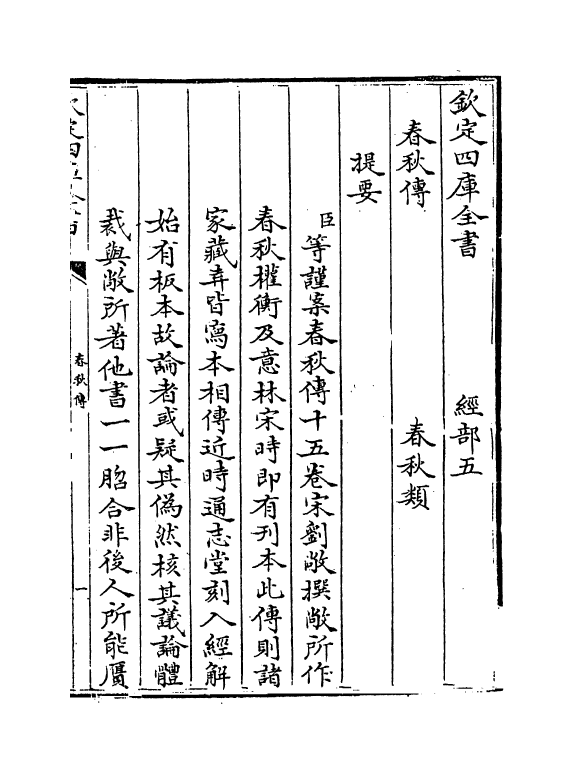 欽定四庫全書 經部五
春秋傳 春秋類
提要
臣等謹案春秋傳十五卷宋劉敞撰敞所作
春秋權衡及意林宋時即有刊本此傳則諸
家藏弆皆寫本相傳近時通志堂刻入經解
始有板本故論者或疑其偽然核其議論體
裁與敞所著他書一一脗合非後人所能贗
春秋傳
一